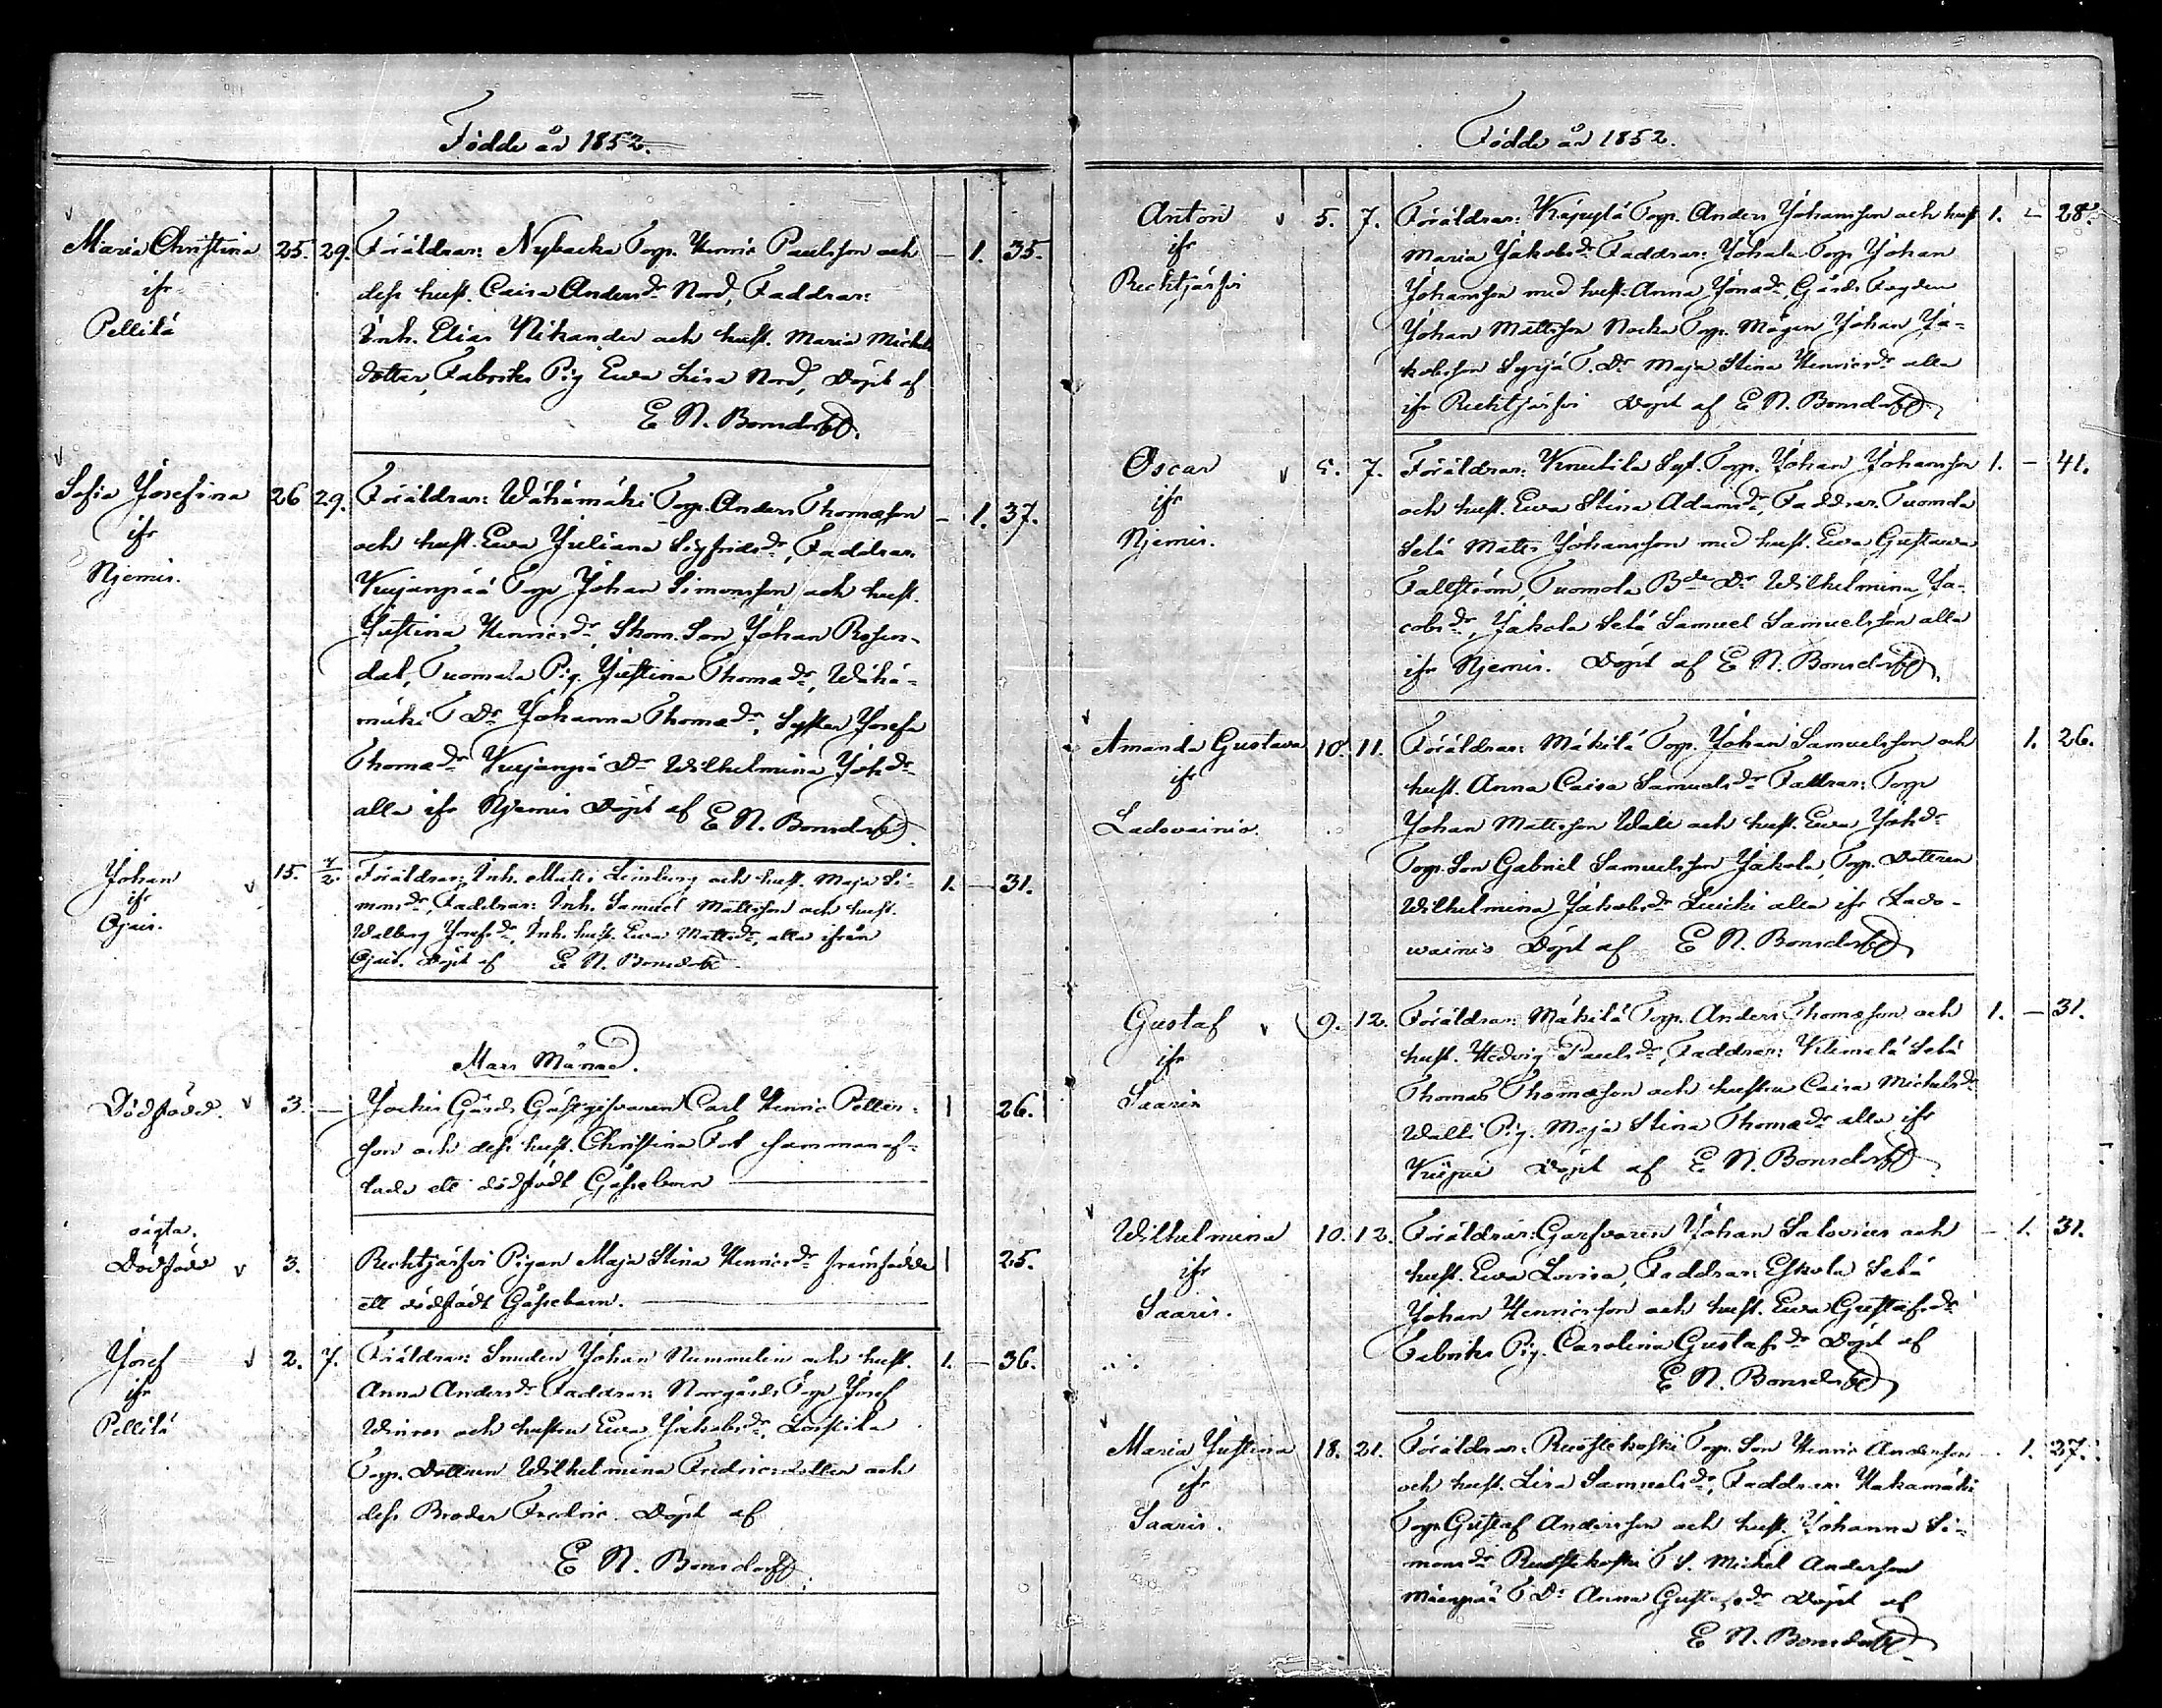 Födde år 1852.
Maria Christina 25. 29. Föräldrar: Nybacka Torp. Henric Paulsson och — 1. 35.
ifr dess hust. Caisa Andersdr Nord, Faddrar:
Pellilä Inh. Elias Nikander och hust. Maria Michels
dotter, Fabriks Pig. Ewa Lisa Nord, Döpt af
E N. Bonsdorff.
Sofia Josefina 26 29. Föräldrar: Wähämäki Torp. Anders Thomasson — 1. 37.
ifr och hust. Ewa Juliana Sigfridsdr, Faddrar:
Njemis. Kurjanpää Torp Johan Simonsson och hust.
Justina Henricsdr, Skom. Son Johan Rosen-
dal, Tuomala Pig. Justina Thomadr, Wähä-
mäki T Dr Johanna Thomædr, Syster Josefa
Thomædr Kurjanpä Dr Wilhelmina Johdr
alla ifr Njemis Döpt af E N. Bonsdorff.
Johan 15. 7/2. Föräldrar: Inh. Matts Leinberg och hust. Maja Si- 1. — 31.
ifr monsdr, Faddrar: Inh. Samuel Mattsson och hust.
Ojais. Walborg Josefsdr, Inh. hust. Ewa Mattsdr, alla ifrån
Ojais. Döpt af E N. Bonsdorff
Mars Månad.
Dödfödd. 3. — Jockis Gårds Gästgifvaren Carl Henric Petters- 1 26.
son och dess hust. Christina Fort sammanaf-
lade ett dödfödt Gossebarn
oägta.
Dödfödd 3. Rechtjärfvi Pigan Maja Stina Henricsdr framfödde 1 25.
ett dödfödt Gossebarn.
Josef 2. 7. Föräldrar: Smeden Johan Nummelin och hust. 1. — 36.
ifr Anna Andersdr Faddrar: Norrgårds Torp Josef
Pellilä och hustru Ewa Jakobsdr,
Torp. Dottren Wilhelmina Fredricsdotter och
dess Broder Fredric. Döpt af
E N. Bonsdorff.
Födde år 1852.
Anton 5. 7. Föräldrar: Käpylä Torp. Anders Johansson och hust 1. — 28.
ifr Maria Jakobsdr Faddrar: Torp Johan
Rechtjärfvi Johansson med hust. Anna Jonadr, Gårds Fogden
Johan Mattsson Nocka Torp. Mågen Johan Ja-
kobsson Syrjä T. Dr Maja Stina Henricsdr alla
ifr Rechtjärfvi Döpt af E N. Bonsdorff.
Oscar 5. 7. Föräldrar: Knutila Torp. Johan Johansson 1. — 41.
ifr och hust. Ewa Stina Adamsdr, Faddrar: Tuomola
Njemis. Matts Johansson med hust. Ewa Gustawa
Fallström, Tuomola Dr Wilhelmina Ja-
cobsdr, Jakola Samuel Samuelsson alla
ifr Njemis. Döpt af E N. Bonsdorff.
Amanda Gustava 10. 11. Föräldrar: Mäkilä Torp. Johan Samuelsson och 1. 26.
ifr hust. Anna Caisa Samuelsdr Faddrar: Torp
Ladovainio. Johan Mattsson Wali och hust. Ewa Johdr
Torp. Son Gabriel Samuelsson Jakola, Torp. Dottren
Wilhelmina Jakobsdr alla ifr Lado-
wainio Döpt af E N. Bonsdorff
Gustaf 9. 12. Föräldrar: Mäkilä Torp. Anders Thomasson och 1. — 31.
ifr hust. Hedvig Paulsdr, Faddrar:
Saaris Thomas Thomasson och hustru Caisa Michelsdr
Pig. Maja Stina Thomædr alla ifr
Döpt af E N. Bonsdorff
Wilhelmina 10. 12. Föräldrar: Garfvaren Johan Salovius och — 1. 31.
ifr hust. Ewa Lovisa, Faddrar: Eskola
Saaris. Johan Henricsson och hust. Ewa Gustafsdr
Fabriks Pig. Carolina Gustafsdr Döpt af
E N. Bonsdorff
Maria Justina 18. 21. Föräldrar: Torp. Son Henric Andersson 1. 37.
ifr och hust. Lisa Samuelsdr, Faddrar: Hakamäki
Saaris. Torp Gustaf Andersson och hust. Johanna Si-
monsdr T S. Michel Andersson
Mäenpää T Dr Anna Gustafsdr Döpt af
E N. Bonsdorff.